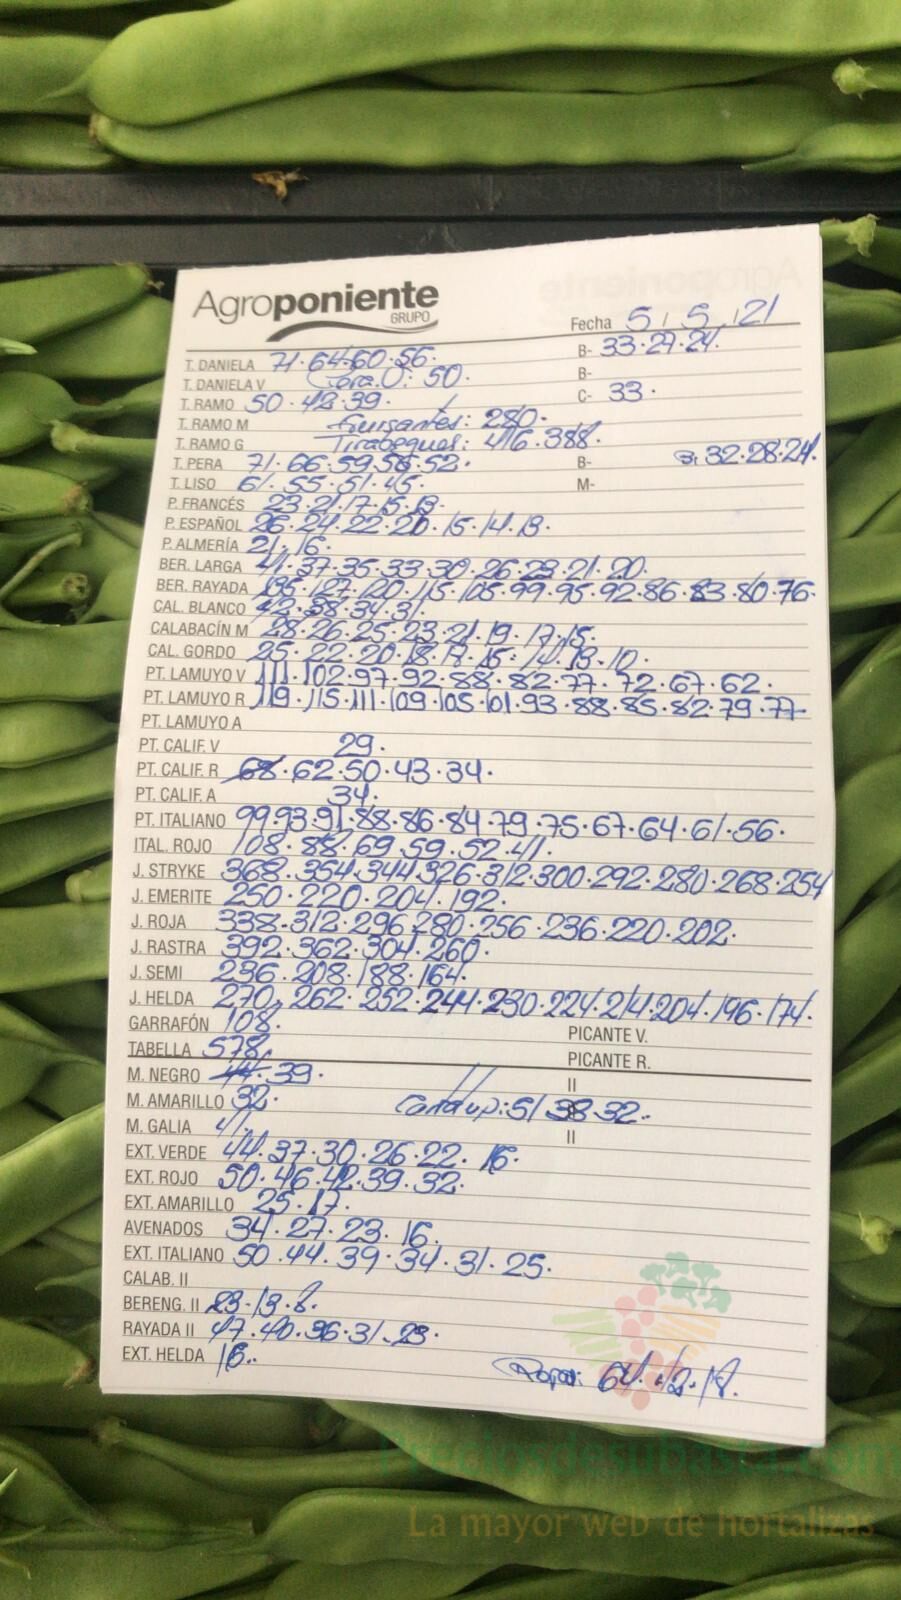 Agroponiente
GRUPO
Fecha 5 / 5 / 21
T. DANIELA 71·64·60·56· B- 33·27·24·
T. DANIELA V 50· B-
T. RAMO 50·42·39· C- 33·
T. RAMO M Guisantes: 280·
T. RAMO G Tirabeques: 416·388·
T. PERA 71·66·59·56·52· B- 32·28·24·
T. LISO 61·55·51·45· M-
P. FRANCÉS 23·21·17·15·13·
P. ESPAÑOL 26·24·22·20·15·14·13·
P. ALMERÍA 21·16·
BER. LARGA 41·37·35·33·30·26·23·21·20·
BER. RAYADA 135·127·120·115·105·99·95·92·86·83·80·76·
CAL. BLANCO 42·38·34·31·
CALABACÍN M 28·26·25·23·21·19·17·15·
CAL. GORDO 25·22·20·18·17·15·14·13·10·
PT. LAMUYO V 111·102·97·92·88·82·77·72·67·62·
PT. LAMUYO R 119·115·111·109·105·101·93·88·85·82·79·77
PT. LAMUYO A
PT. CALIF. V 29·
PT. CALIF. R 68·62·50·43·34·
PT. CALIF. A 34·
PT. ITALIANO 99·93·91·88·86·84·79·75·67·64·61·56·
ITAL. ROJO 108·88·69·59·52·41·
J. STRYKE 368·354·344·326·312·300·292·280·268·254
J. EMERITE 250·220·204·192·
J. ROJA 338·312·296·280·256·236·220·202·
J. RASTRA 392·362·304·260·
J. SEMI 236·208·188·164·
J. HELDA 270·262·252·244·230·224·214·204·196·174·
GARRAFÓN 108· PICANTE V.
TABELLA 578· PICANTE R.
M. NEGRO 44·39· II
M. AMARILLO 32· 51·38·32·
M. GALIA 41· II
EXT. VERDE 44·37·30·26·22·16·
EXT. ROJO 50·46·42·39·32·
EXT. AMARILLO 25·17·
AVENADOS 34·27·23·16·
EXT. ITALIANO 50·44·39·34·31·25·
CALAB. II
BERENG. II 23·13·8·
RAYADA II 47·40·36·31·23·
EXT. HELDA 16·
64·42·18·
Preciosdesubasta.com
La mayor web de hortalizas